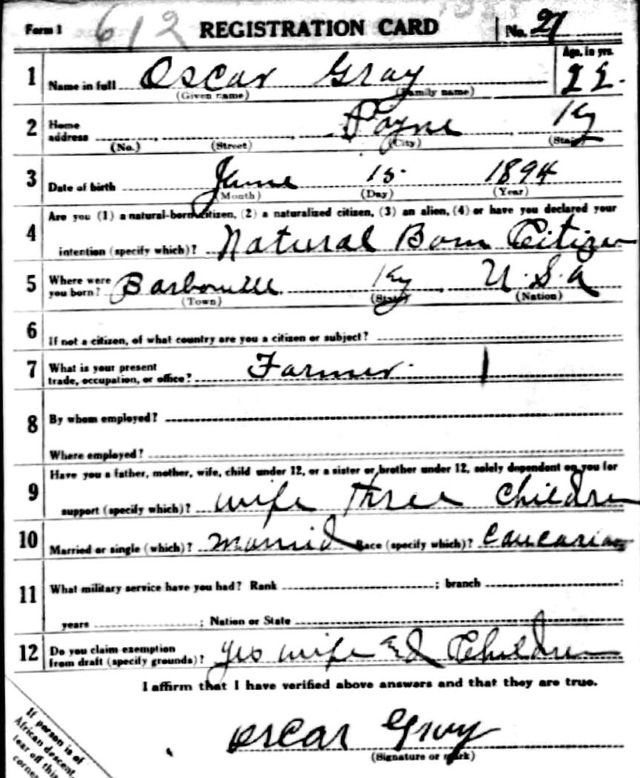 Form 1 612 REGISTRATION CARD No. 21
1 Name in full Oscar Gray Age, in yrs. 22
(Given name) (Family name)
2 Home address Payne Ky
(No.) (Street) (City) (State)
3 Date of birth June 15 1894
(Month) (Day) (Year)
4 Are you (1) a natural-born citizen, (2) a naturalized citizen, (3) an alien, (4) or have you declared your
intention (specify which)? Natural Born Citizen
5 Where were you born? Barbourville Ky U.S.A
(Town) (State) (Nation)
6 If not a citizen, of what country are you a citizen or subject?
7 What is your present trade, occupation, or office? Farmer
8 By whom employed?
Where employed?
9 Have you a father, mother, wife, child under 12, or a sister or brother under 12, solely dependent on you for
support (specify which)? wife three Children
10 Married or single (which)? Married Race (specify which)? Caucasian
11 What military service have you had? Rank ; branch
years ; Nation or State
12 Do you claim exemption from draft (specify grounds)? yes wife Children
I affirm that I have verified above answers and that they are true.
Oscar Gray
(Signature or mark)
If person is of
African descent,
tear off this
corner